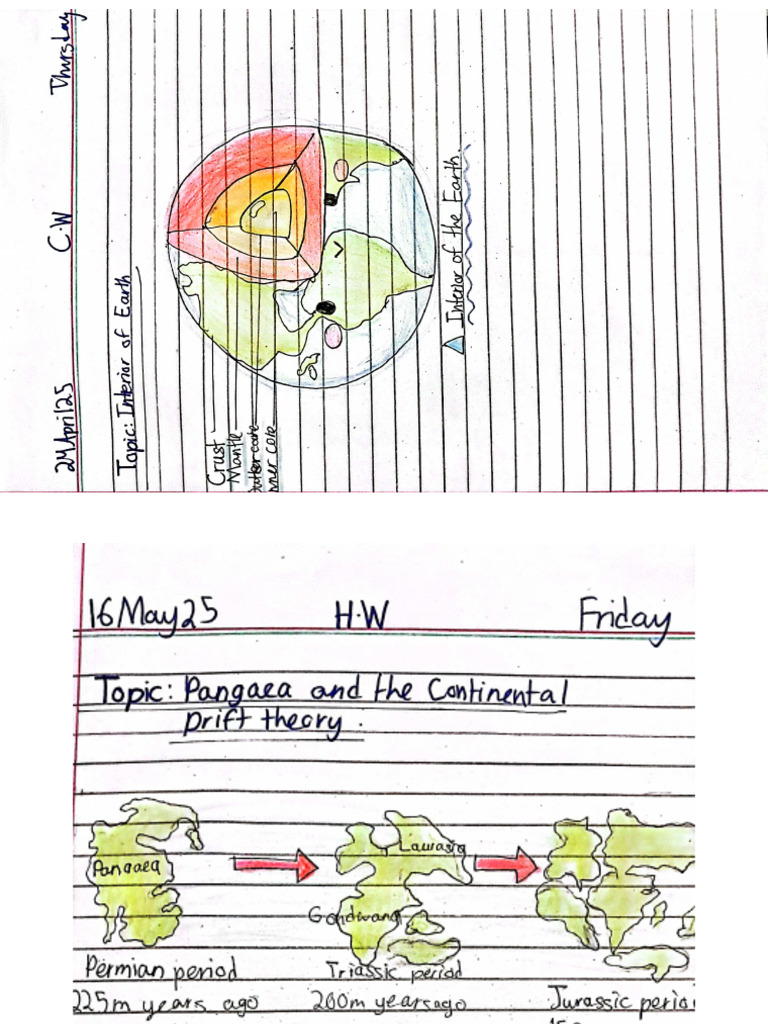 24 April 25 C.W Thursday
Topic: Interior of Earth
Crust
Mantle
outer core
nner core
Interior of the Earth.
16 May 25 H.W Friday
Topic: Pangaea and the Continental
Drift theory.
Pangaea
Lawrasia
Gondwana
Permian period Triassic period Jurassic perio
225m years ago 200m years ago